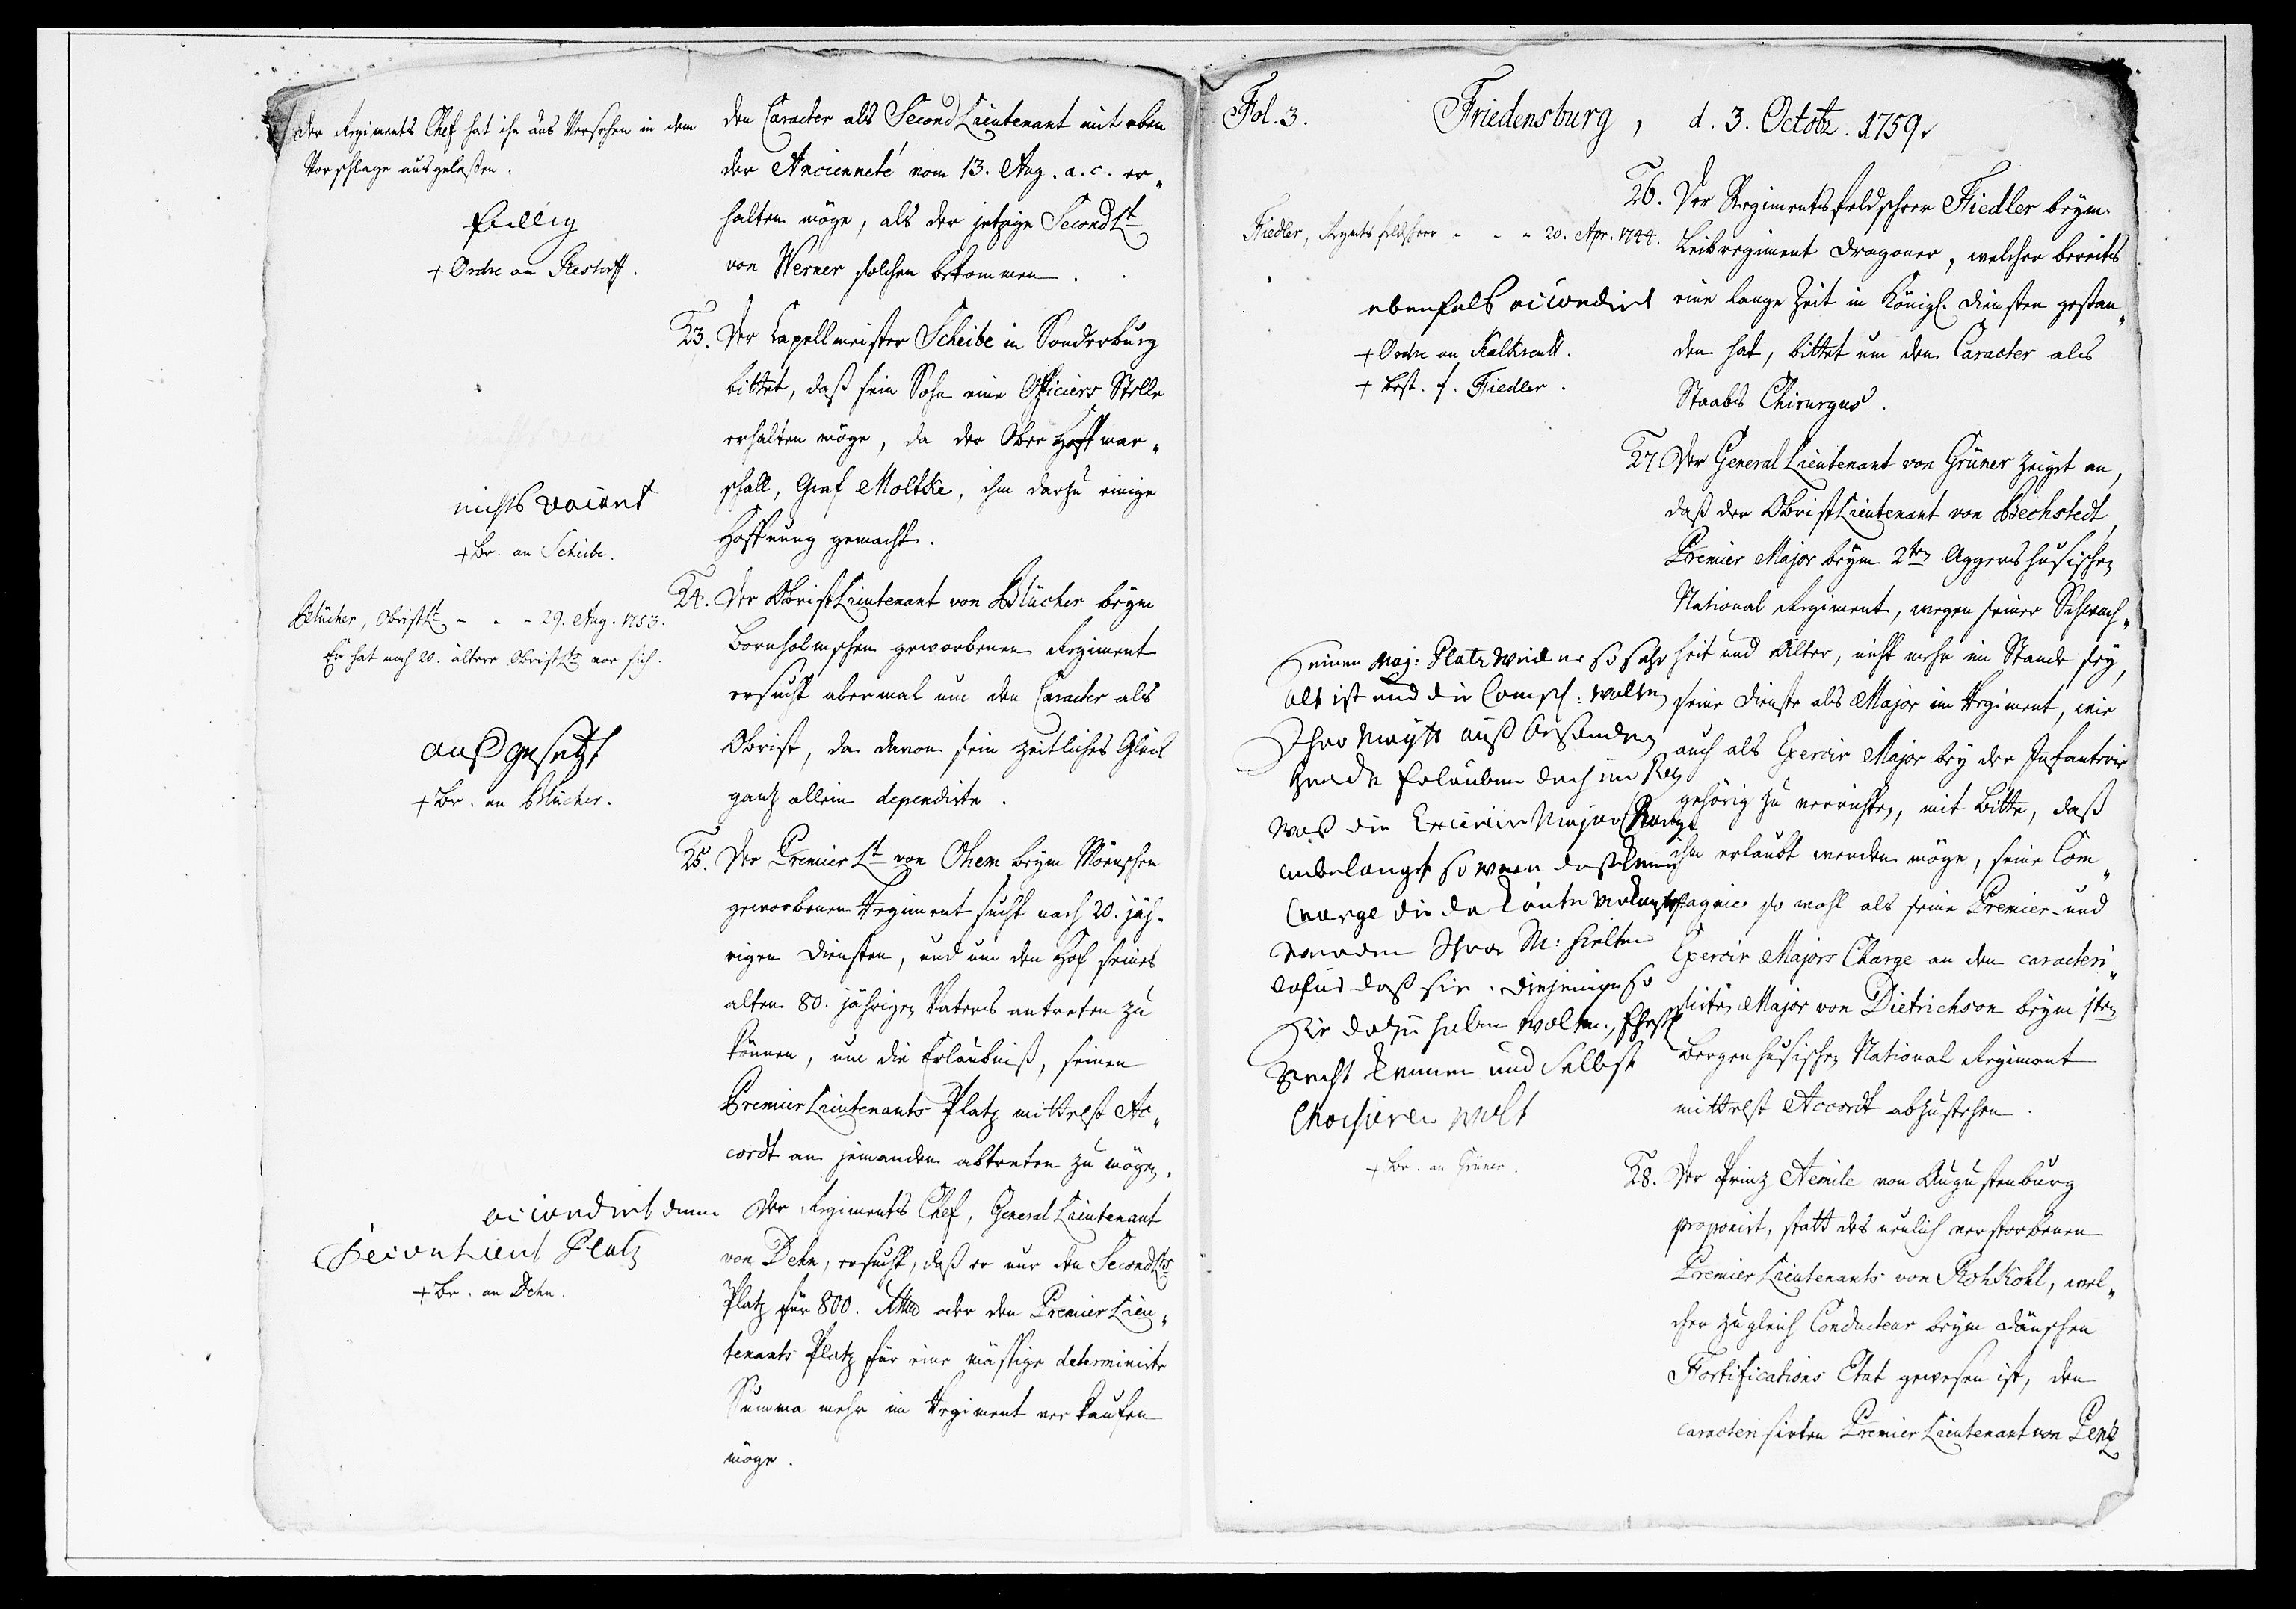 der Regiments Chef hat ihn aus Versehen in dem
Vorschlage ausgelaßen.
billig
+ Ordre an Restorff.
nichts vacant
+ Br. an Scheibe.
Blücher, Obristlt - - - 29. Aug. 1753.
Er hat noch 20. ältere Obristlts vor sich.
außgesetzt
+ Br. an Blücher.
accordirt einen
Second Lieut Platz
+ Br. an Dehn.
den Caracter als Second Lieutenant mit eben
der Ancienneté vom 13. Aug. a. c. er„
halten möge, als der jetzige Second Lt
von Werner solchen bekommen.
23. Der Capellmeister Scheibe in Sonderburg
bittet, daß sein Sohn eine Officiers Stelle
erhalten möge, da der Ober Hoffmar„
schall, Graf Moltke, ihm dazu einige
Hoffnung gemacht.
24. Der Obrist Lieutenant von Blücher beym
Bornholmschen geworbenen Regiment
ersucht abermal um den Caracter als
Obrist, da davon sein zeitliches Glück
gantz allein dependirte.
25. Der Premier Lt von Ohem beym Möenschen
geworbenen Regiment sucht nach 20. jäh„
rigen Diensten, und um den Hof seines
alten 80. jährigen Vaters antreten zu
können, um die Erlaubniß, seinen
Premier Lieutenants Platz mittelst Ac„
cordt an jemanden abtreten zu mögen.
Der Regiments Chef, General Lieutenant
von Dehn, ersucht, daß er nur den Second Lts
Platz für 800. Rthlr oder den Premier Lieu„
tenants Platz für eine mäßige determinirte
Summa mehr im Regiment verkaufen
möge.
Fol. 3.
Friedensburg, d. 3. Octobr. 1759.
Fiedler, Regmts feldscheer - - - 20. Apr. 1744.
ebenfals accordirt
+ Ordre an Kalkreutt.
+ Best. f. Fiedler.
Seinen Maj: Platz weil er so sehr
alt ist und die Comp: wollen
Ihro Maytt auß besonderer
Gnade Erlauben doch im Reg
was die Exercier Major Charge
anbelanget so wenn daß keine
Charge die da könte verkauft
werden Ihro M: hielten
dafür daß sie diejenigen so
Sie dazu haben wolten, Erst
Recht kennen und Selbst
Choisiren wolt
+ Br. an Grüner.
26. Der Regimentsfeldscheer Fiedler beym
Leibregiment Dragoner, welcher bereits
eine lange Zeit in Königl. Diensten gestan„
den hat, bittet um den Caracter als
Staabs Chirurgus.
27. Der General Lieutenant von Grüner zeiget an,
daß der Obrist Lieutenant von Bechstedt,
Premier Major beym 2ten Aggershusischen
National Regiment, wegen seiner Schwach„
heit und Alter, nicht mehr im Stande sey,
seine Dienste als Major im Regiment, wie
auch als Exercir Major bey der Infanterie
gehörig zu verrichten, mit Bitte, daß
ihm erlaubt werden möge, seine Com„
pagnie so wohl als seine Premier- und
Exercir Majors Charge an den caracteri„
sirten Major von Dietrichson beym 1ten
Bergenhusischen National Regiment
mittelst Accordt abzustehen.
28. Der Prinz Aemile von Augustenburg
proponirt, statt des neulich verstorbenen
Premier Lieutenants von Rohkohl, wel„
cher zugleich Conducteur beym Dänschen
Fortifications Etat gewesen ist, den
caracterisirten Premier Lieutenant von Pentz